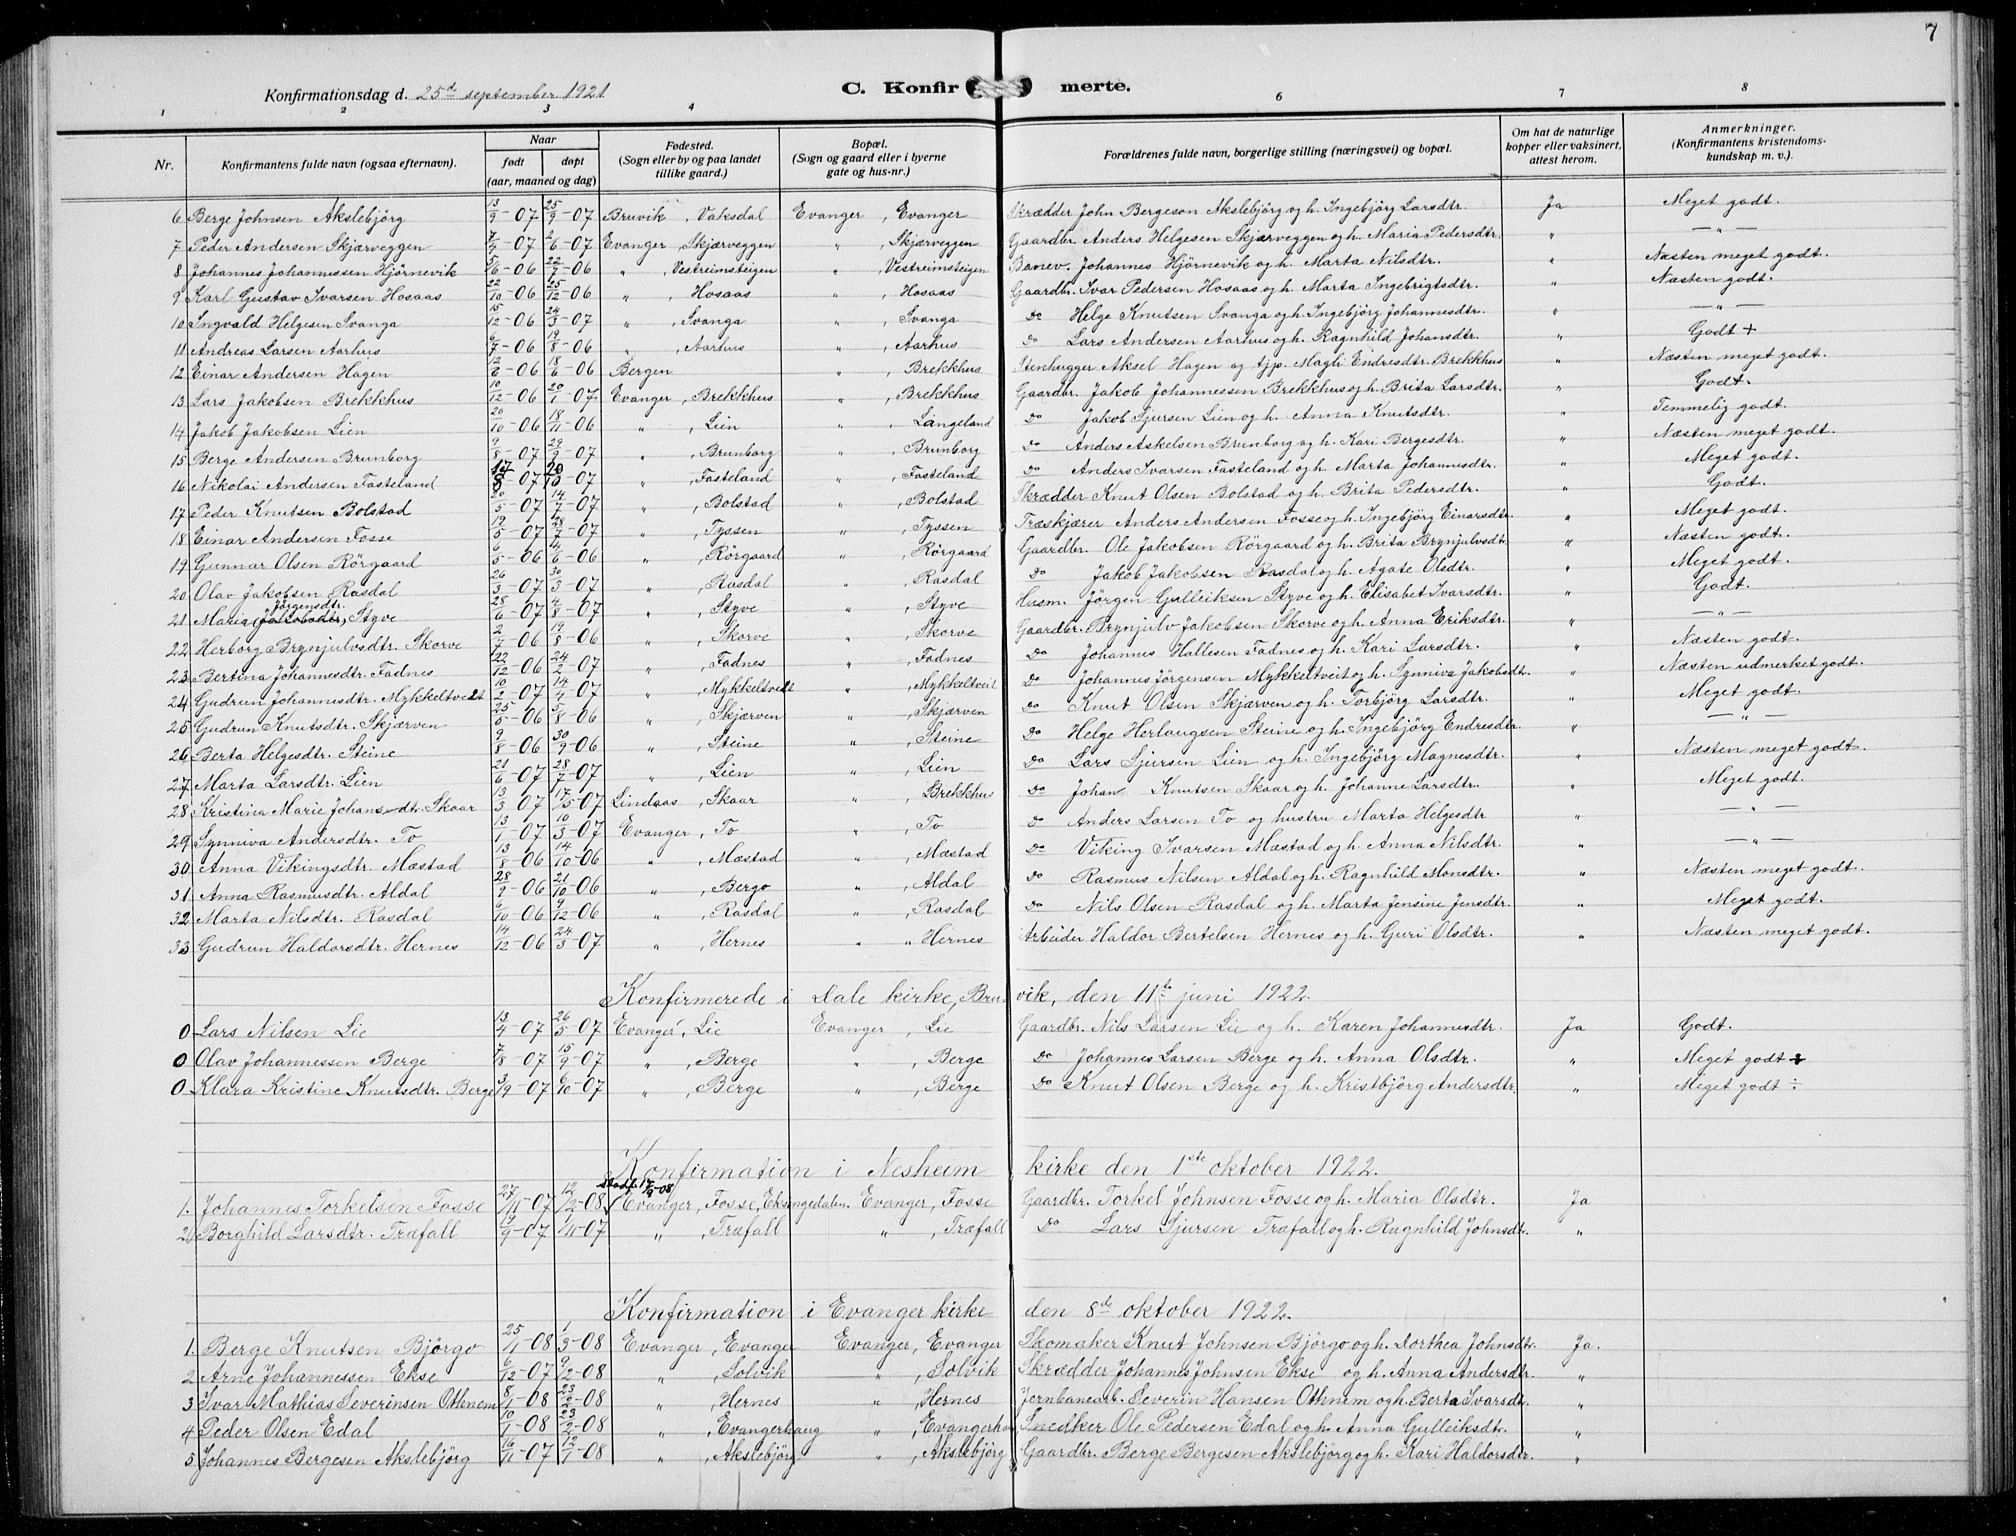 7
Konfirmationsdag d. 25de september 1921. C. Konfirmerte.
1 2 3 4 6 7 8
Nr. Konfirmantens fulde navn (ogsaa efternavn). Naar født døpt (aar, maaned og dag) Fødested. (Sogn eller by og paa landet tillike gaard.) Bopæl. (Sogn og gaard eller i byerne gate og hus-nr.) Forældrenes fulde navn, borgerlige stilling (næringsvei) og bopæl. Om hat de naturlige kopper eller vaksinert, attest herom. Anmerkninger. (Konfirmantens kristendoms-kundskap m. v.).
6 Berge Johnsen Akslebjörg 13/9-07 25/9-07 Bruvik, Vaksdal Evanger, Evanger Skrædder John Bergeson Akslebjörg og h. Ingebjörg Larsdtr. Ja Meget godt.
7 Peder Andersen Skjærveggen 7/4-07 2/6-07 Evanger, Skjærveggen " , Skjærveggen Gaardbr. Anders Helgesen Skjærveggen og h. Maria Pedersdtr. " — " —
8 Johannes Johannessen Hjörnevik 5/6-06 22/7-06 " , Vestreimsteigen " , Vestreimsteigen Banev. Johannes Hjörnevik og h. Marta Nilsdtr. " Næsten meget godt.
9 Karl Gustav Ivarsen Hosaas 22/10-06 25/12-06 " , Hosaas " , Hosaas Gaardbr. Ivar Pedersen Hosaas og h. Marta Ingebrigtsdtr. " Næsten godt.
10 Ingvald Helgesen Svanga 15/12-06 24/3-07 " , Svanga " , Svanga Do Helge Knutsen Svanga og h. Ingebjörg Johannesdtr. " — " —
11 Andreas Larsen Aarhus 6/7-06 19/8-06 " , Aarhus " , Aarhus Do Lars Andersen Aarhus og h. Ragnhild Johansdtr. " Godt +
12 Einar Andersen Hagen 12/6-06 18/6-06 Bergen " , Brekkhus Stenhugger Aksel Hagen og tjp. Magli Endresdtr. Brekkhus " Næsten meget godt.
13 Lars Jakobsen Brekkhus 10/12-06 20/1-07 Evanger, Brekkhus " , Brekkhus Gaardbr. Jakob Johannessen Brekkhus og h. Brita Larsdtr. " Godt.
14 Jakob Jakobsen Lien 20/10-06 18/11-06 " , Lien " , Langeland Do Jakob Sjursen Lien og h. Anna Knutsdtr. " Temmelig godt.
15 Berge Andersen Brunborg 9/8-07 29/9-07 " , Brunborg " , Brunborg Do Anders Askelsen Brunborg og h. Kari Bergesdtr. " Næsten meget godt.
16 Nikolai Andersen Fasteland 17/8-07 20/10-07 " , Fasteland " , Fasteland Do Anders Ivarsen Fasteland og h. Marta Johannesdtr. " Meget godt.
17 Peder Knutsen Bolstad 20/5-07 14/7-07 " , Bolstad " , Bolstad Skrædder Knut Olsen Bolstad og h. Brita Pedersdtr. " Godt.
18 Einar Andersen Fosse 19/5-07 28/7-07 " , Tyssen " , Tyssen Træskjærer Anders Andersen Fosse og h. Ingebjörg Einarsdtr. " Meget godt.
19 Gunnar Olsen Rörgaard 6/5-06 4/6-06 " , Rörgaard " , Rörgaard Gaardbr. Ole Jakobsen Rörgaard og h. Brita Brynjulvsdt. " Næsten godt.
20 Olav Jakobsen Rasdal 26/3-07 30/3-07 " , Rasdal " , Rasdal Do Jakob Jakobsen Rasdal og h. Agate Olsdtr. " Meget godt.
21 Maria (Jakobsdtr.) Jörgensdtr. Styve 28/6-07 4/8-07 " , Styve " , Styve Husm. Jörgen Gulleiksen Styve og h. Elisabet Ivarsdtr. " Godt.
22 Herborg Brynjulvsdtr. Skorve 2/7-06 19/8-06 " , Skorve " , Skorve Gaardbr. Brynjulv Jakobsen Skorve og h. Anna Eriksdtr. " — " —
23 Bertina Johannesdtr. Fadnes 22/12-06 24/2-07 " , Fadnes " , Fadnes Do Johannes Hallesen Fadnes og h. Kari Larsdtr. " Næsten godt.
24 Gudrun Johannesdtr. Mykkeltvedt 10/2-07 14/4-07 " , Mykkeltvedt " , Mykkeltveit Do Johannes Jörgensen Mykkeltveit og h. Synniva Jakobsdt. " Næsten udmerket godt.
25 Gudrun Knutsdtr. Skjærven 25/5-06 5/8-06 " , Skjærven " , Skjærven Do Knut Olsen Skjærven og h. Torbjörg Larsdtr. " Meget godt.
26 Berta Helgesdtr. Steine 9/8-06 30/9-06 " , Steine " , Steine Do Helge Herlaugsen Steine og h. Ingebjörg Endresdtr. " — " —
27 Marta Larsdtr. Lien 21/6-07 28/7-07 " , Lien " , Lien Do Lars Sjursen Lien og h. Ingebjörg Magnesdtr. " Næsten meget godt.
28 Kristina Marie Johansdtr. Skaar 13/3-07 17/5-07 Lindaas, Skaar " , Brekkhus Do Johan Knutsen Skaar og h. Johanne Larsdtr. " Meget godt.
29 Synniva Andersdtr. To 13/1-07 10/3-07 Evanger, To " , To Do Anders Larsen To og hustru Marta Helgesdtr " — " —
30 Anna Vikingsdtr. Mæstad 13/8-06 14/10-06 " , Mæstad " , Mæstad Do Viking Ivarsen Mæstad og h. Anna Nilsdtr. " — " —
31 Anna Rasmusdtr. Aldal 28/9-06 21/10-06 " , Bergo " , Aldal Do Rasmus Nilsen Aldal og h. Ragnhild Monsdtr. " Næsten meget godt.
32 Marta Nilsdtr. Rasdal 6/10-06 9/12-06 " , Rasdal " , Rasdal Do Nils Olsen Rasdal og h. Marta Jensine Jensdtr. " Meget godt.
33 Gudrun Haldorsdtr. Hernes 14/12-06 24/3-07 " , Hernes " , Hernes Arbeider Haldor Bertelsen Hernes og h. Guri Olsdtr. " Næsten meget godt.
Konfirmerede i Dale kirke, Bruvik, den 11te juni 1922.
0 Lars Nilsen Lie 13/4-07 26/5-07 Evanger, Lie Evanger Lie Gaardbr. Nils Larsen Lie og h. Karen Johannesdtr. Ja Godt.
0 Olav Johannessen Berge 7/8-07 15/9-07 " , Berge " , Berge Do Johannes Larsen Berge og h. Anna Olsdtr. " Meget godt ÷
0 Klara Kristine Knutsdtr. Berge 3/9-07 6/10-07 " , Berge " , Berge Do Knut Olsen Berge og h. Kristbjörg Andersdtr. " Meget godt ÷
Konfirmation i Nesheim kirke den 1ste oktober 1922.
1. Johannes Torkelsen Fosse 27/11-07 12/2-08 stadf. 17/9-08 Evanger, Fosse, Eksingedalen. Evanger, Fosse Gaardbr. Torkel Johnsen Fosse og h. Maria Olsdtr. Ja
2 Borghild Larsdtr. Træfall 19/9-07 1/11-07 " , Træfall " , Træfall Do Lars Sjursen Træfall og h. Ragnhild Johnsdtr. "
Konfirmation i Evanger kirke den 8de oktober 1922.
1. Berge Knutsen Björgo 25/1-08 1/3-08 Evanger, Evanger Evanger, Evanger Skomaker Knut Johnsen Björgo og h. Dorthea Johnsdtr. Ja.
2 Arne Johannessen Ekse 6/12-07 9/2-08 " , Solvik " , Solvik Skrædder Johannes Johnsen Ekse og h. Anna Andersdtr. "
3 Ivar Mathias Severinsen Othnem 8/1-08 23/2-08 " , Hernes " , Hernes Jernbanearb. Severin Hansen Othnem og h. Berta Ivarsdt. "
4 Peder Olsen Edal 10/1-08 23/2-08 " , Evangerhaug " , Evangerhaug Snedker Ole Pedersen Edal og h. Anna Gulleiksdtr. "
5 Johannes Bergesen Akslebjörg 16/11-07 12/1-08 " , Akslebjörg " , Akslebjörg Gaardbr. Berge Bergesen Akslebjörg og h. Kari Haldorsdtr. "